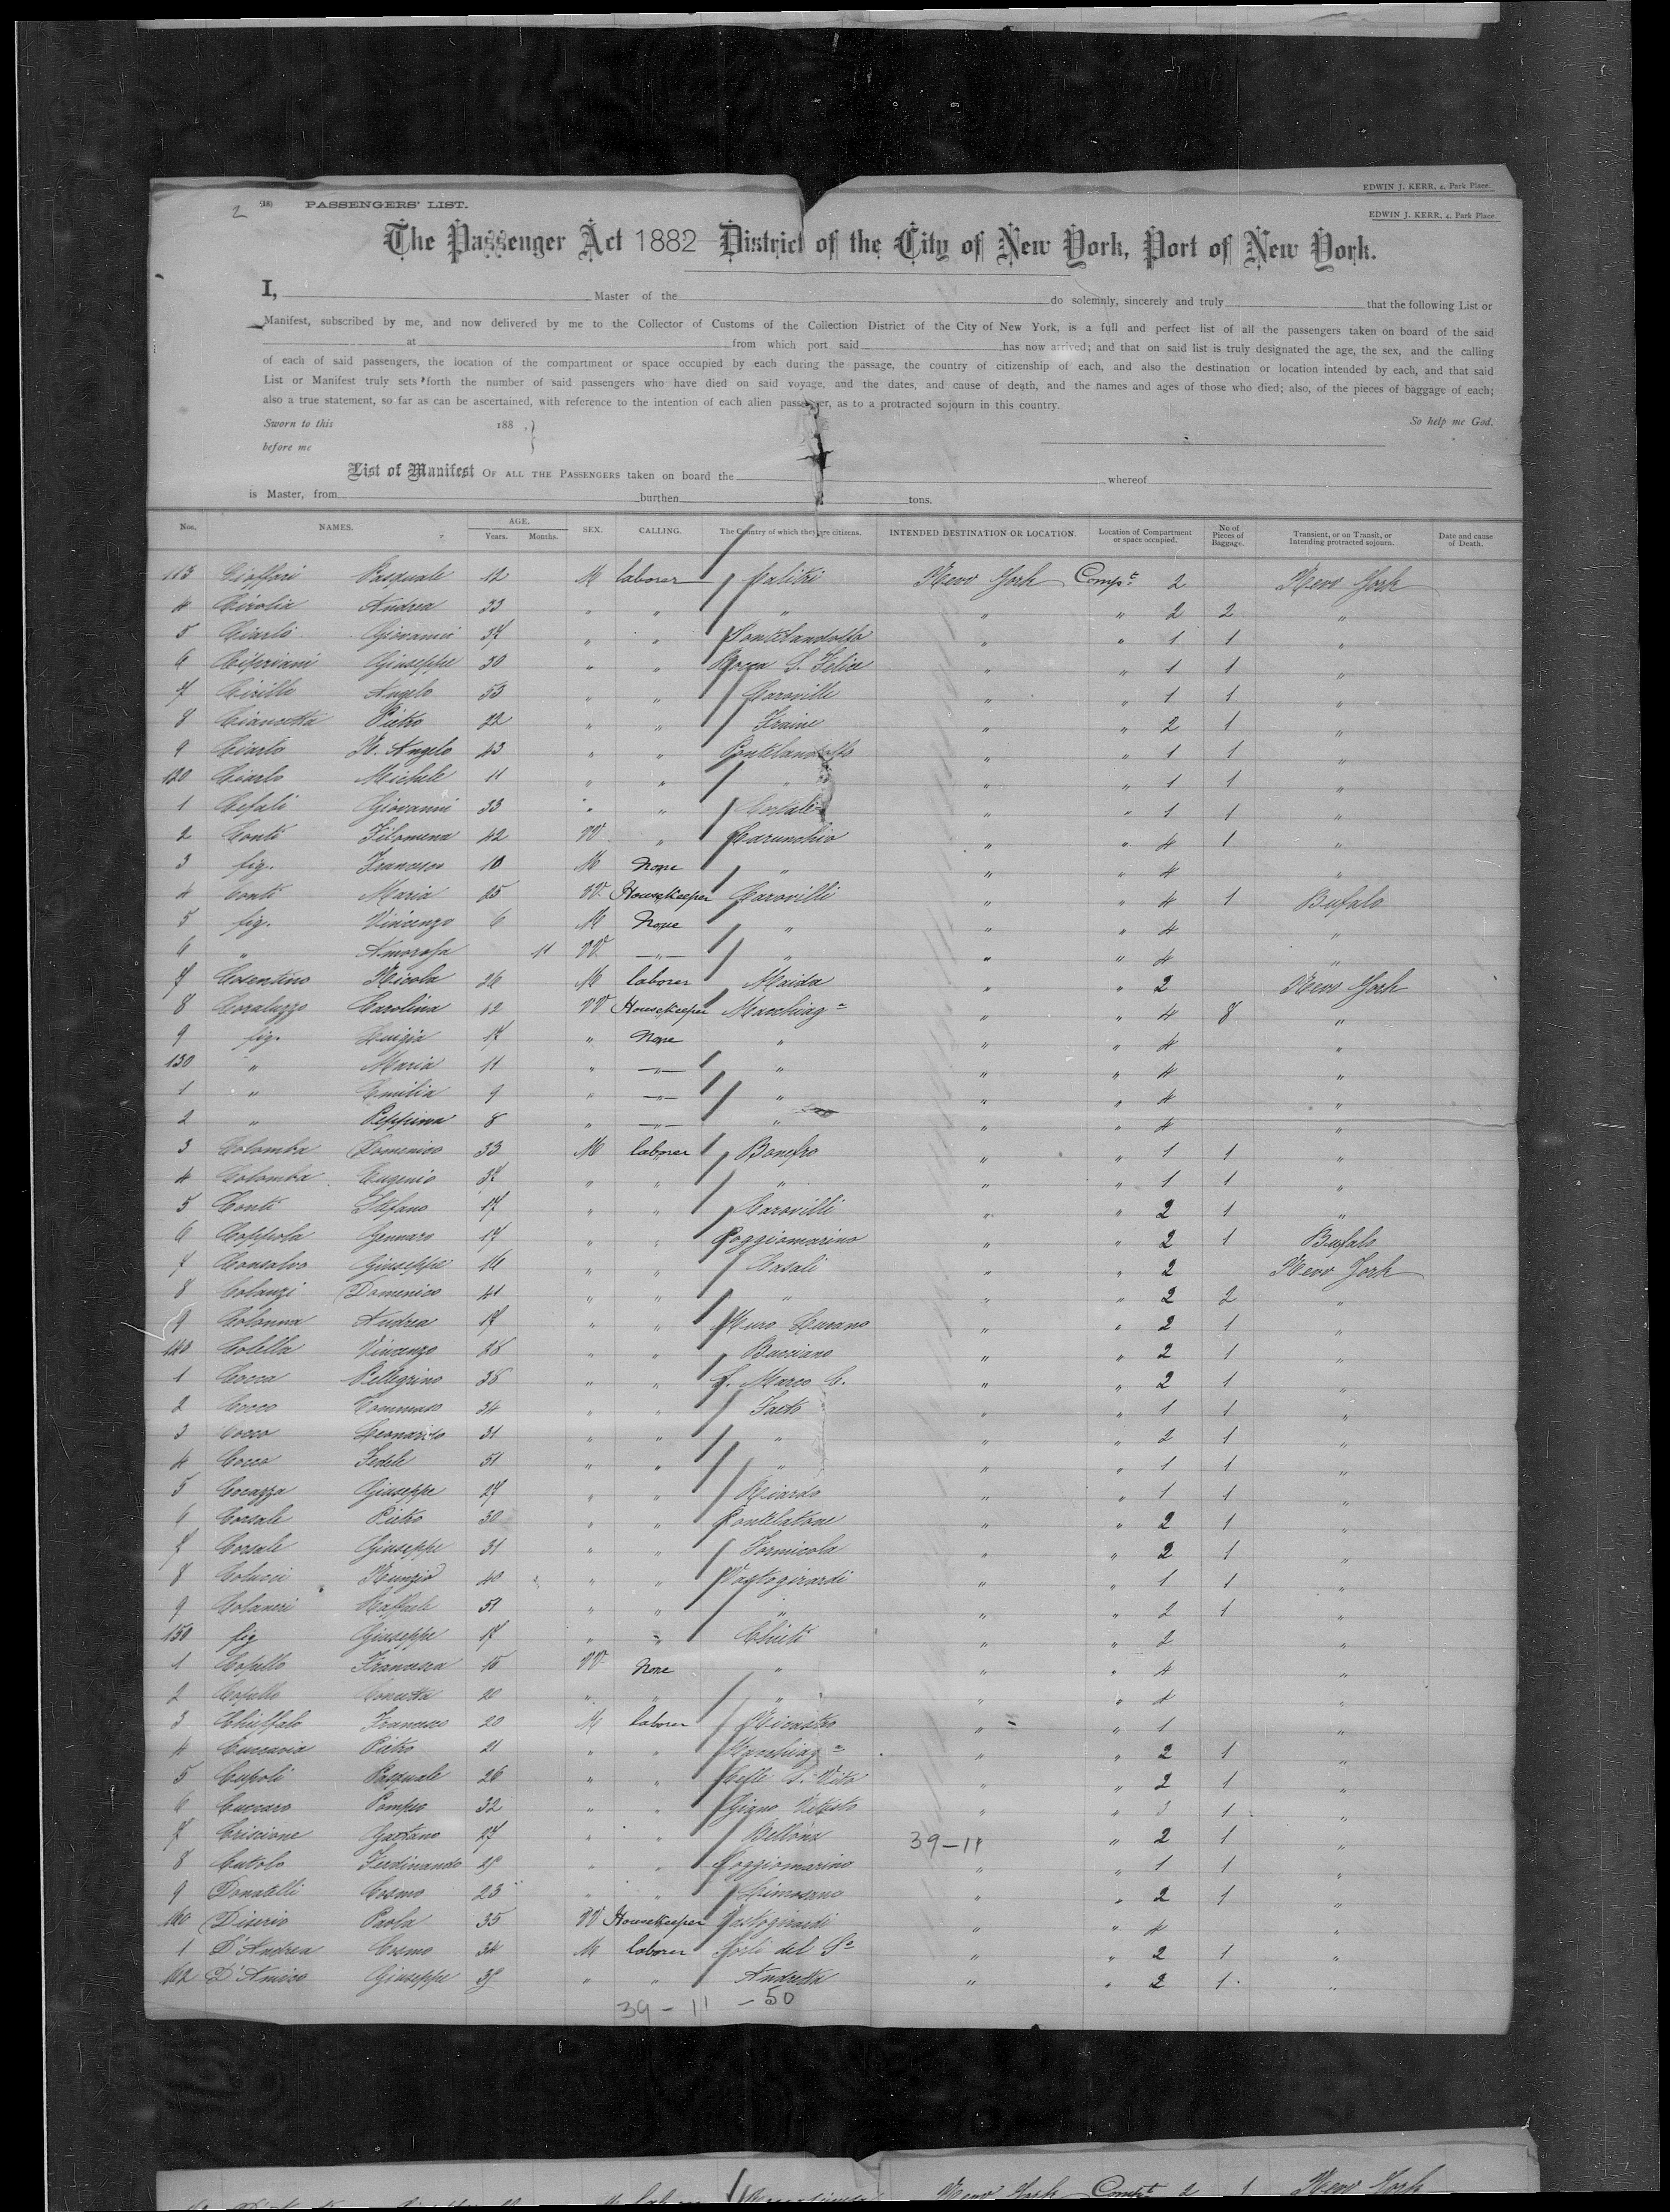 EDWIN J. KERR, 4, Park Place.
2 (18) PASSENGERS' LIST.
EDWIN J. KERR, 4, Park Place.
The Passenger Act 1882 District of the City of New York, Port of New York.
I, Master of the do solemnly, sincerely and truly that the following List or
Manifest, subscribed by me, and now delivered by me to the Collector of Customs of the Collection District of the City of New York, is a full and perfect list of all the passengers taken on board of the said
at from which port said has now arrived; and that on said list is truly designated the age, the sex, and the calling
of each of said passengers, the location of the compartment or space occupied by each during the passage, the country of citizenship of each, and also the destination or location intended by each, and that said
List or Manifest truly sets forth the number of said passengers who have died on said voyage, and the dates, and cause of death, and the names and ages of those who died; also, of the pieces of baggage of each;
also a true statement, so far as can be ascertained, with reference to the intention of each alien passenger, as to a protracted sojourn in this country.
Sworn to this 188 , } So help me God.
before me
List of Manifest OF ALL THE PASSENGERS taken on board the whereof
is Master, from burthen tons.
Nos. NAMES. AGE. Years. Months. SEX. CALLING. The Country of which they are citizens. INTENDED DESTINATION OR LOCATION. Location of Compartment or space occupied. No of Pieces of Baggage. Transient, or on Transit, or Intending protracted sojourn. Date and cause of Death.
113 Cioffari Pasquale 12 M laborer Calitri New York Compt 2 New York
4 Cirolia Andrea 33 " " " " " 2 2 "
5 Ciarlo Giovanni 37 " " Pontelandolfo " " 1 1 "
6 Cipriani Giuseppe 30 " " Rocca S. Felice " " 1 1 "
7 Cirillo Angelo 53 " " Carovilli " " 1 1 "
8 Ciancetta Pietro 22 " " Fraine " " 2 1 "
9 Ciarlo N. Angelo 43 " " Pontelandolfo " " 1 1 "
120 Ciarlo Michele 11 " " " " " 1 1 "
1 Cefali Giovanni 33 " " " " 1 1 "
2 Conti Filomena 42 W " Carunchio " " 4 1 "
3 fig. Francesco 10 M None " " " 4 "
4 Conti Maria 25 W Housekeeper Carovilli " " 4 1 Bufalo
5 fig. Vincenzo 6 M None " " " 4 "
6 " Amorosa 11 W " " " " 4 "
7 Cosentino Nicola 26 M laborer Maida " " 2 New York
8 Coraluzzo Carolina W Housekeeper Macchiag " " 4 8 "
9 fig. Luigia 17 " None " " " 4 "
130 " Maria 11 " " " " " 4 "
1 " Emilia 9 " " " " " 4 "
2 " Peppina 8 " " " " " 4 "
3 Colomba Domenico 33 M laborer Bonefro " " 1 1 "
4 Colomba Eugenio 37 " " " " " 1 1 "
5 Conti Stefano 17 " " Carovilli " " 2 1 "
6 Coppola Gennaro 17 " " Poggiomarino " " 2 1 Bufalo
7 Consalvo Giuseppe 14 " " Casali " " 2 New York
8 Colanzi Domenico 41 " " " " " 2 2 "
9 Colonna Andrea 17 " " Muro Lucano " " 2 1 "
140 Colella Vincenzo " " Bucciano " " 2 1 "
1 Cocca Pellegrino 38 " " S. Marco C. " " 2 1 "
2 Cocco Tommaso 34 " " Faeto " " 1 1 "
3 Cocco Leonardo 31 " " " " " 2 1 "
4 Cocco Fedele 51 " " " " " 1 1 "
5 Cocazza Giuseppe 27 " " Riardo " " 1 1 "
6 Corsale Pietro 30 " " Pontelatone " " 2 1 "
7 Corsale Giuseppe 31 " " Formicola " " 2 1 "
8 Colucci Nunzio 40 " " Vastogirardi " " 1 1 "
9 Colaneri Raffaele 51 " " " " " 2 1 "
150 fig Giuseppe 17 " " Chieti " " 2 "
1 Copello Francesca W None " " " 4 "
2 Copello Concetta 20 " " " " " 4 "
3 Chieffalo Francesco 20 M laborer Nicastro " " 1 "
4 Cuccaria Pietro 21 " " Macchiag " " 2 1 "
5 Cupoli Pasquale 26 " " Celle S. Vito " " 2 1 "
6 Cuccaro Pompeo 32 " " " " 3 1 "
7 Criscione Gaetano 27 " " Bellona 39-11 " 2 1 "
8 Cutolo Ferdinando " " Poggiomarino " " 1 1 "
9 Donatelli Cosmo 23 " " Limosano " " 2 1 "
160 Diserio Paola 35 W Housekeeper Vastogirardi " " 4 "
1 D'Andrea Cosmo 34 M laborer Forli del S. " " 2 1 "
162 D'Amico Giuseppe " " Andretta " " 2 1 "
39-11-50
New York Compt 2 1 New York